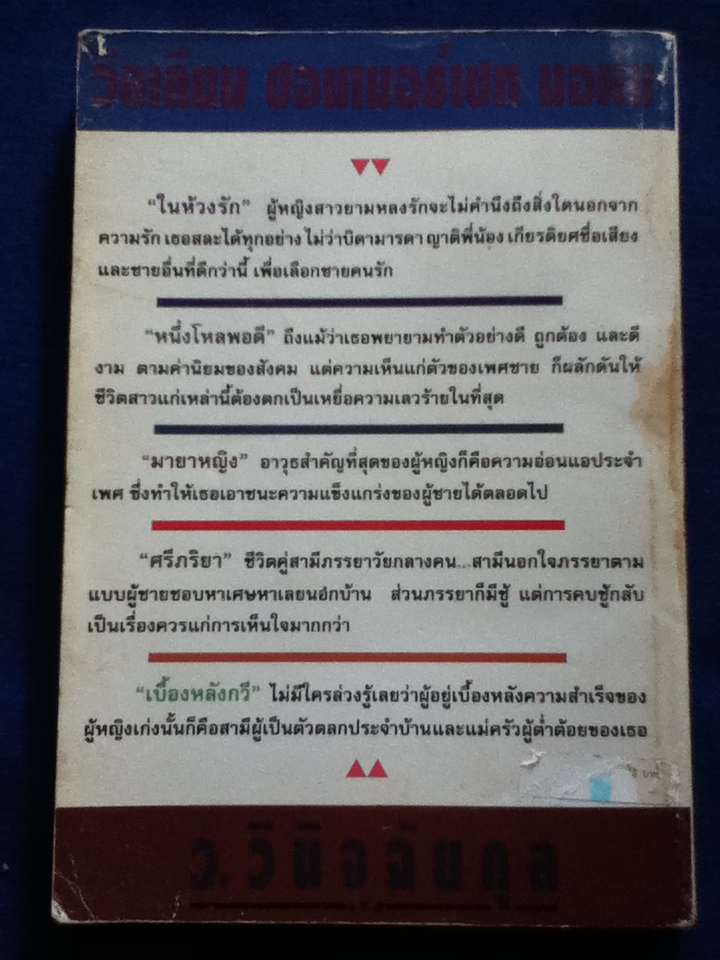 วิลเลียม ซอมเมอร์เซท มอห์ม
“ในห้วงรัก” ผู้หญิงสาวยามหลงรักจะไม่คำนึงถึงสิ่งใดนอกจาก
ความรัก เธอสละได้ทุกอย่าง ไม่ว่าบิดามารดา ญาติพี่น้อง เกียรติยศชื่อเสียง
และชายอื่นที่ดีกว่านี้ เพื่อเลือกชายคนรัก
“หนึ่งโหลพอดี” ถึงแม้ว่าเธอพยายามทำตัวอย่างดี ถูกต้อง และดี
งาม ตามค่านิยมของสังคม แต่ความเห็นแก่ตัวของเพศชาย ก็ผลักดันให้
ชีวิตสาวแก่เหล่านี้ต้องตกเป็นเหยื่อความเลวร้ายในที่สุด
“มายาหญิง” อาวุธสำคัญที่สุดของผู้หญิงก็คือความอ่อนแอประจำ
เพศ ซึ่งทำให้เธอเอาชนะความแข็งแกร่งของผู้ชายได้ตลอดไป
“ศรีภริยา” ชีวิตคู่สามีภรรยาวัยกลางคน...สามีนอกใจภรรยาตาม
แบบผู้ชายชอบหาเศษหาเลยนอกบ้าน ส่วนภรรยาก็มีชู้ แต่การคบชู้กลับ
เป็นเรื่องควรแก่การเห็นใจมากกว่า
“เบื้องหลังกวี” ไม่มีใครล่วงรู้เลยว่าผู้อยู่เบื้องหลังความสำเร็จของ
ผู้หญิงเก่งนั้นก็คือสามีผู้เป็นตัวตลกประจำบ้านและแม่ครัวผู้ต่ำต้อยของเธอ
บาท
ว.วินิจฉัยกุล